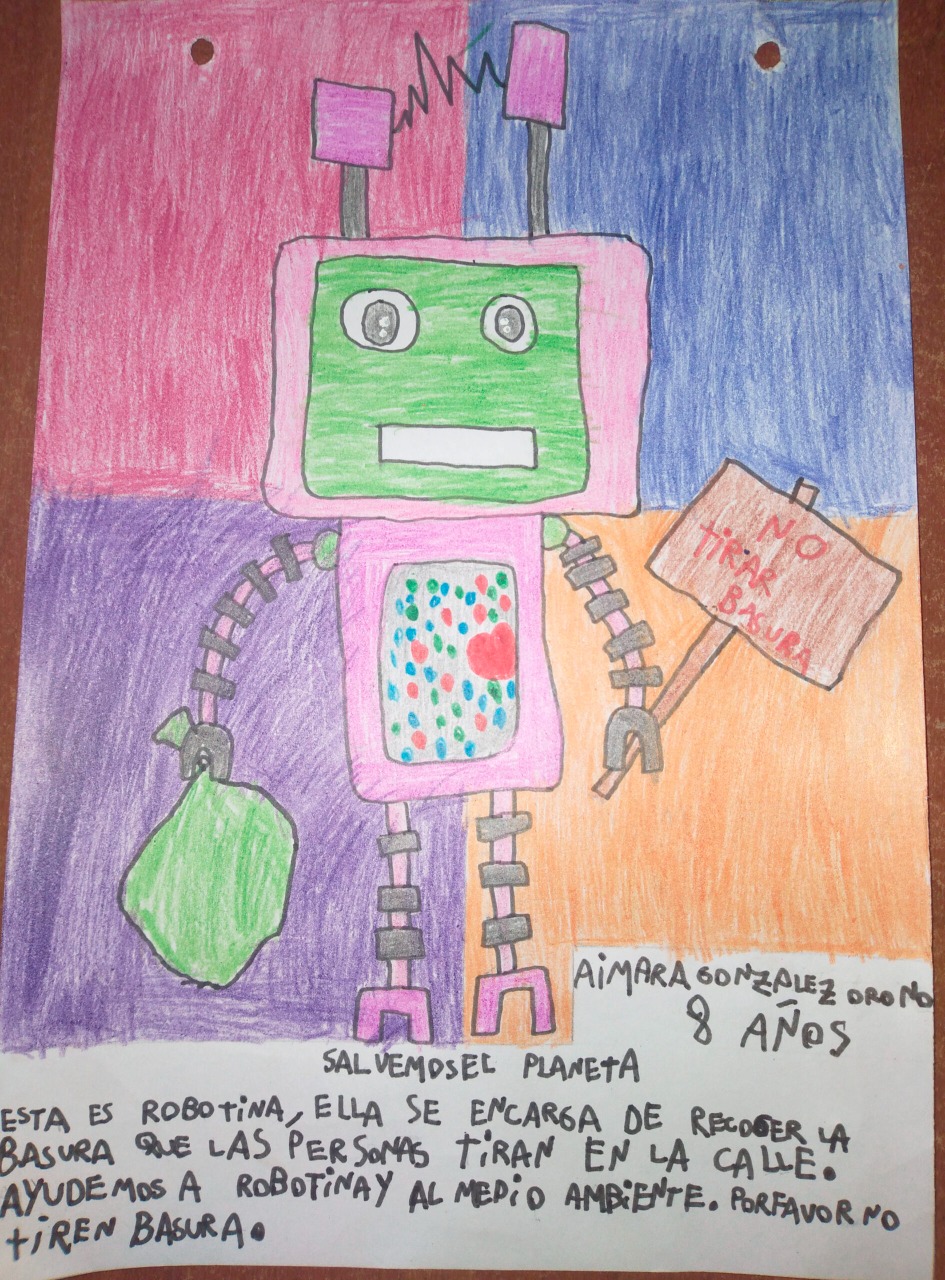 NO
TIRAR
BASURA
AIMARA GONZALEZ OROÑO
8 AÑOS
SALVEMOS EL PLANETA
ESTA ES ROBOTINA, ELLA SE ENCARGA DE RECOGER LA
BASURA QUE LAS PERSONAS TIRAN EN LA CALLE.
AYUDEMOS A ROBOTINA Y AL MEDIO AMBIENTE. PORFAVOR NO
TIREN BASURA.